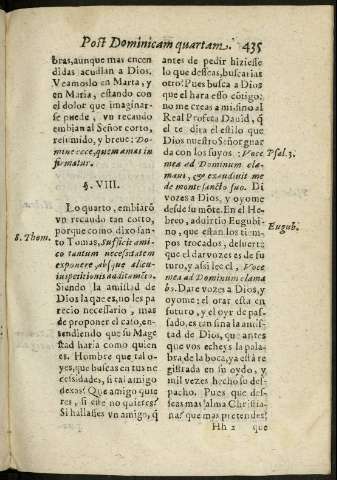 Post Dominicam quartam. 435
bras, aunque mas encen
didas acudian a Dios.
Veamoslo en Marta, y
en Maria, estando con
el dolor que imaginar-
se puede, vn recaudo
embian al Señor corto,
resumido, y breue: Do-
mine ecce, quem amas in
firmatur.
§. VIII.
Lo quarto, embiarõ
vn recaudo tan corto,
porque como dixo san-
to Tomas, Sufficit ami-
co tantum necessitatem
exponere, absque alicu-
ius petitionis additamẽto.
Siendo la amistad de
Dios la que es, no les pa
recio necessario, mas
de proponer el caso, en-
tendiendo que su Mage
stad haria como quien
es. Hombre que tal o-
yes, que buscas en tus ne
cessidades, si tal amigo
dexas? Que amigo quie
res, si este no quieres?
Si hallasses vn amigo, q̃
S. Thom.
antes de pedir hiziesse
lo que desseas, buscarias
otro? Pues busca a Dios
que el hara esso cõtigo:
no me creas a mi sino al
Real Profeta Dauid, q̃
el te dira el estilo que
Dios nuestro Señor guar
da con los suyos: Voce
mea ad Dominum cla-
maui, & exaudiuit me
de monte sancto suo. Di
vozes a Dios, y oyome
desde su mõte. En el He-
breo, aduirtio Eugubi-
no, que estan los tiem-
pos trocados, de suerte
que el dar vozes es de fu-
turo, y assi lee el, Voce
mea ad Dominum clama
bo. Dare vozes a Dios, y
oyome: el orar esta en
futuro, y el oyr de pas-
sado, es tan fina la amis-
tad de Dios, que antes
que vos echeys la pala-
bra de la boca, ya està re
gistrada en su oydo, y
mil vezes hecho su des-
pacho. Pues que des-
seas mas alma Christia-
na? que mas pretendes?
Psal. 3.
Eugub.
Hh 2 que